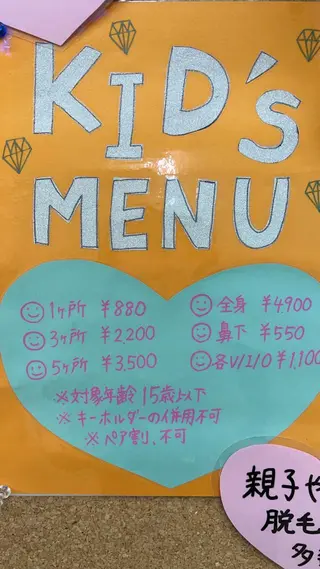 KID'S
MENU
1ヶ所 ¥880
3ヶ所 ¥2200
5ヶ所 ¥3,500
全身 ¥4900
鼻下 ¥550
各V/I/O ¥1,100
※対象年齢 15歳以下
※キーホルダーの併用不可
※ペア割り、不可
親子や
脱毛
多